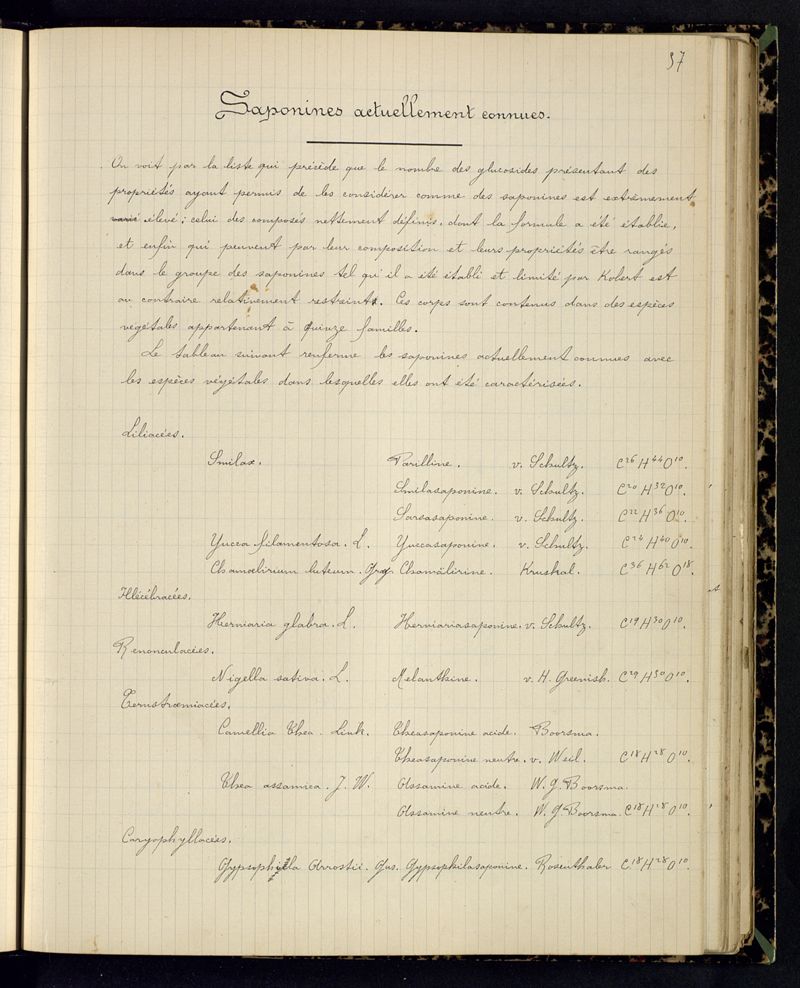 37
Saponines actuellement connues.
On voit par la liste qui précède que le nombre des glucosides présentant des
propriétés ayant permis de les considérer comme des saponines est extrêmement
varié élevé ; celui des composés nettement définis, dont la formule a été établie,
et enfin qui peuvent par leur composition et leurs propriétés être rangés
dans le groupe des saponines tel qu'il a été établi et limité par Kobert est
au contraire relativement restreint. Ces corps sont contenus dans des espèces
végétales appartenant à quinze familles.
Le tableau suivant renferme les saponines actuellement connues avec
les espèces végétales dans lesquelles elles ont été caractérisées.
Liliacées.
Smilax. Parilline. v. Schultz. C26H44O10.
Smilasaponine. v. Schultz. C20H32O10.
Sarsasaponine. v. Schultz. C22H36O10.
Yucca filamentosa. L. Yuccasaponine. v. Schultz. C24H40O10.
Chamœlirium luteum. Gray Chamälirine. Kruskal. C36H62O18.
Illécébracées.
Herniaria glabra. L. Herniariasaponine. v. Schultz. C19H30O10.
Renonculacées.
Nigella sativa. L. Melanthine. v. H. Greenish. C29H50O10.
Ternstrœmiacées.
Camellia Thea. Link. Theasaponine acide. Boorsma.
Theasaponine neutre. v. Weil. C18H28O10.
Thea assamica. J. W. Assamine acide. W. G. Boorsma.
Assamine neutre. W. G. Boorsma. C18H28O10.
Caryophyllacées.
Gypsophilla Arrostii. Gus. Gypsophilasaponine. Rosenthaler C18H28O10.